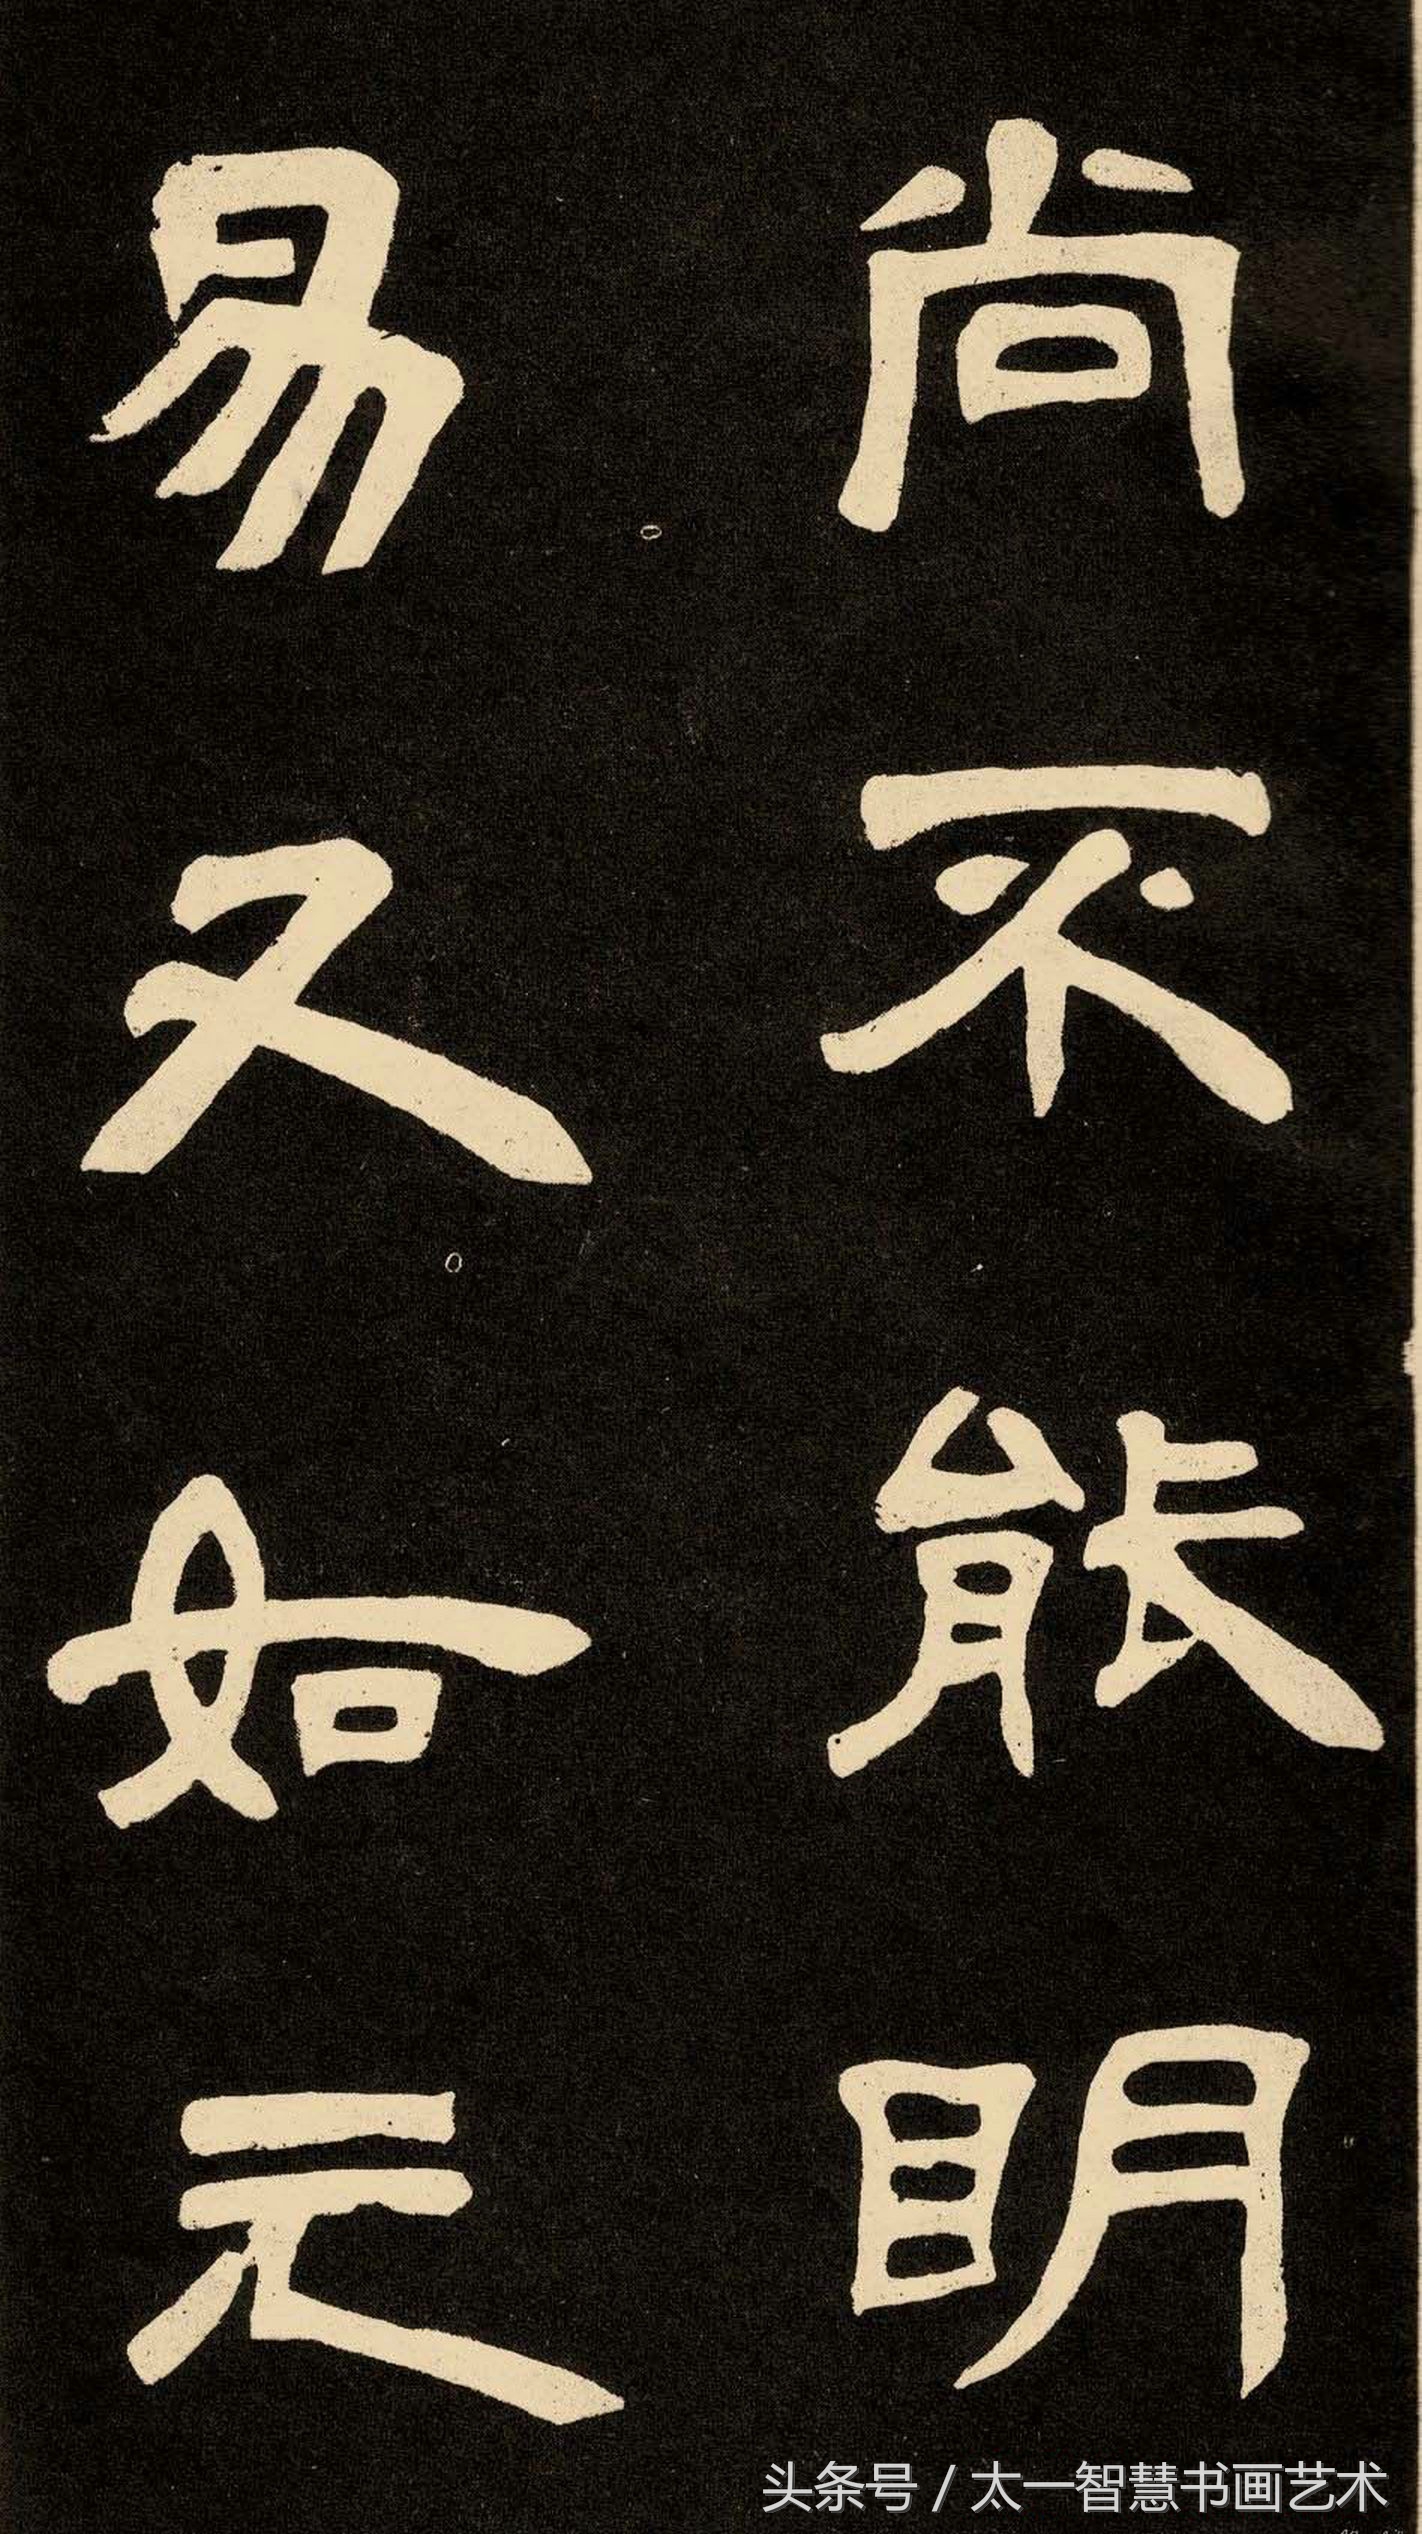 尚不能明
易又如元
头条号 / 太一智慧书画艺术